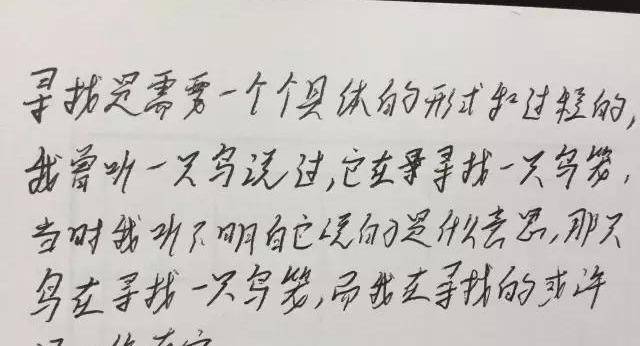 寻找是需要一个个具体的形式和过程的,
我曾听一只鸟说过,它在寻寻找一只鸟笼,
当时我听不明白它说的是什么意思,那只
鸟在寻找一只鸟笼,而我在寻找的或许